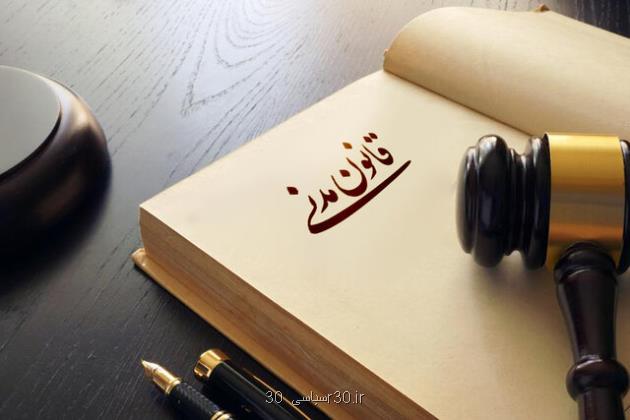 قانون مدنی
30سیاسی r30.ir